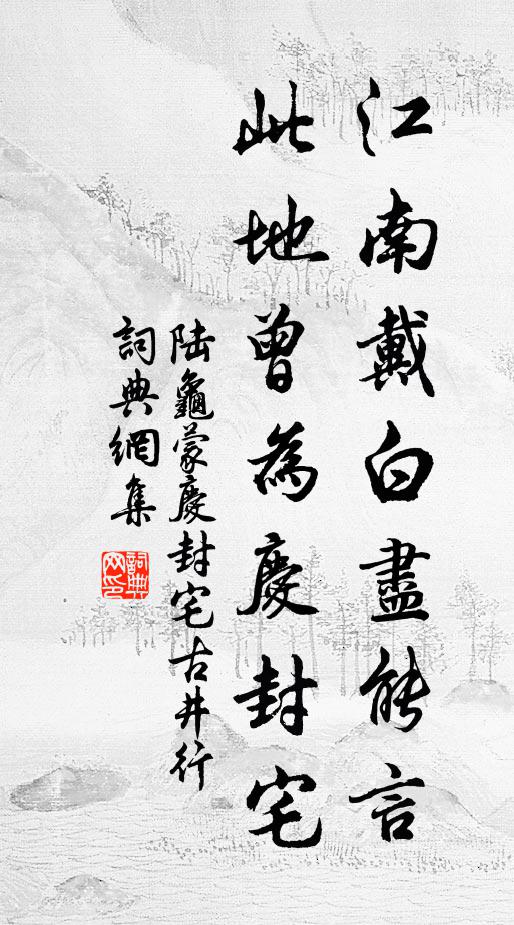 江南戴白盡能言
此地曾為慶封宅
陸龜蒙慶封宅古井行
詞典網集
詞典網印